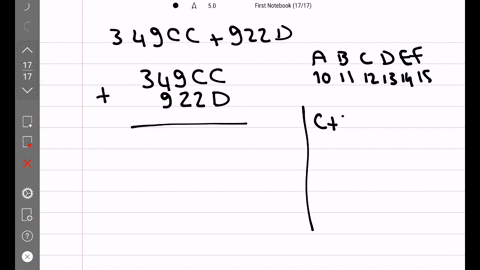 5.0
First Notebook (17/17)
17
17
349CC + 922D
A B C D E F
10 11 12 13 14 15
349CC
+ 922D
C+